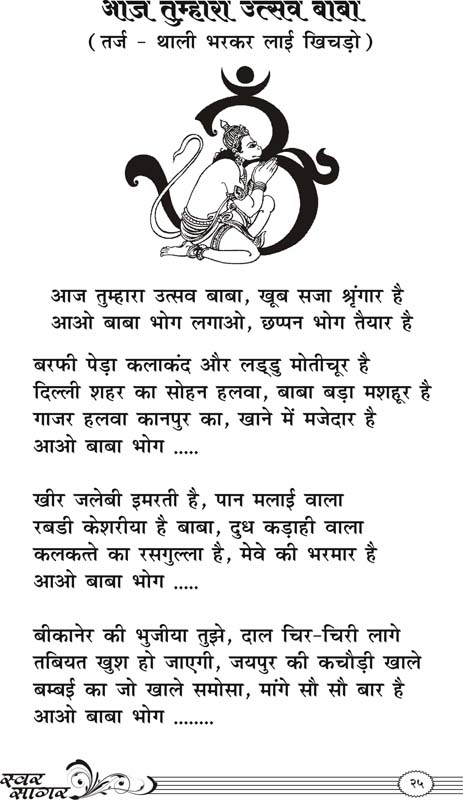 आज तुम्हारा उत्सव बाबा
( तर्ज - थाली भरकर लाई खिचड़ो )
आज तुम्हारा उत्सव बाबा, खूब सजा श्रृंगार है
आओ बाबा भोग लगाओ, छप्पन भोग तैयार है
बरफी पेड़ा कलाकंद और लड्डु मोतीचूर है
दिल्ली शहर का सोहन हलवा, बाबा बड़ा मशहूर है
गाजर हलवा कानपुर का, खाने में मजेदार है
आओ बाबा भोग .....
खीर जलेबी इमरती है, पान मलाई वाला
रबडी केशरीया है बाबा, दुध कड़ाही वाला
कलकत्ते का रसगुल्ला है, मेवे की भरमार है
आओ बाबा भोग .....
बीकानेर की भुजीया तुझे, दाल चिर-चिरी लागे
तबियत खुश हो जाएगी, जयपुर की कचौड़ी खाले
बम्बई का जो खाले समोसा, मांगे सौ सौ बार है
आओ बाबा भोग ........
स्वर
सागर
२५